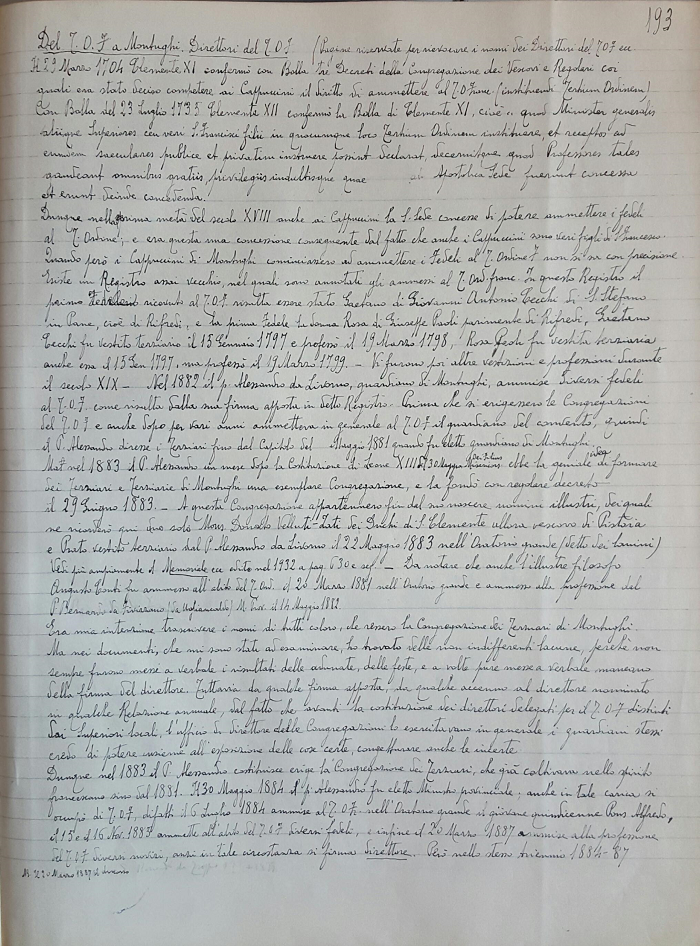 193
Del T.O.F a Montughi. Direttori del T.O.F. (Pagine riservate per rievocare i nomi dei Direttori del T.O.F. ecc
Il 23 Marzo 1704 Clemente XI confermò con Bolla tre Decreti della Congregazione dei Vescovi e Regolari coi
quali era stato deciso competere ai Cappuccini il diritto di ammettere al T.O.Franc. (instituendi Tertium Ordinem)
Con Bolla del 23 Luglio 1735 Clemente XII confermò la Bolla di Clemente XI, cioè "quod Minister generales
aliique Superiores ceu veri S. Francisci filii in quocumque loco Tertium Ordinem instituere, et receptos ad
eumdem saeculares publice et privatim instruere possint declarat, decernitque quod Professores tales
gaudeant omnibus gratiis, privilegiis indultisque quae ab Apostolica Sede fuerint concessa
et erunt deinde concedenda.
Dunque nella prima metà del secolo XVIII anche ai Cappuccini la S. Sede concesse di potere ammettere i fedeli
al T. Ordine; e era questa una concessione conseguente dal fatto che anche i Cappuccini sono veri figli di S. Francesco.
Quando però i Cappuccini di Montughi cominciassero ad ammettere i Fedeli al T. Ordine F. non si sa con precisione.
Esiste un Registro assai vecchio, nel quale sono annotati gli ammessi al T. Ord. franc. In questo Registro il
primo ricevuto al T.O.F. risulta essere stato Gaetano di Giovanni Antonio Cecchi di S. Stefano
in Pane, cioè di Rifredi, e la prima Fedele la donna Rosa di Giuseppe Paoli parimente di Rifredi, Gaetano
Cecchi fu vestito terziario il 15 Gennaio 1797 e professò il 19 Marzo 1798, Rosa Paoli fu vestita terziaria
anche essa il 15 Gen. 1797, ma professò il 19 Marzo 1799. - Vi furono poi altre vestizioni e professioni durante
il secolo XIX - Nel 1882 il p. Alessandro da Livorno, guardiano di Montughi, ammise diversi fedeli
al T.O.F come risulta dalla sua firma apposta in detto Registro. Prima che si erigessero le Congregazioni
del T.O.F e anche dopo per vari anni ammetteva in generale al T.O.F il guardiano del convento, quindi
il P. Alessandro diresse i Terziari fino dal Capitolo del Maggio 1881 quando fu eletto guardiano di Montughi
Ma nel 1883 il P. Alessandro un mese dopo la Costituzione di Leone XIII 30 Maggio Misericors ebbe la geniale idea di formare
dei Terziari e Terziarie di Montughi una esemplare Congregazione, e la fondò con regolare decreto
il 29 Giugno 1883. - A questa Congregazione appartennero fin dal suo nascere, uomini illustri, dei quali
ne ricorderò qui due soli Mons. Donato Velluti-Zati dei Duchi di S. Clemente allora vescovo di Pistoia
e Prato vestito terziario dal P. Alessandro da Livorno il 22 Maggio 1883 nell'Oratorio grande (detto dei Lumini)
Vedi più ampiamente il Memoriale ecc edito nel 1932 a pag. 630 e seg. - Da notare che anche l'illustre filosofo
Augusto Conti fu ammesso all'abito del T. Ord. il 20 Marzo 1881 nell'Oratorio grande e ammesso alla professione dal
P. Bernardo da Fivizzano M. Prov. il 14 Maggio 1882.
Era mia intenzione trascrivere i nomi di tutti coloro, che ressero la Congregazione dei Terziari di Montughi.
Ma nei documenti, che mi sono stati ad esaminare, ho trovato delle non indifferenti lacune, perché non
sempre furono messe a verbale i risultati delle adunate, delle feste, e a volte pur messe a verbale mancano
della firma del direttore. Tuttavia da qualche firma apposta, da qualche accenno al direttore nominato
in qualche Relazione annuale, dal fatto che avanti la costituzione dei direttori delegati per il T.O.F distinti
dai Superiori locali, l'ufficio di direttore delle Congregazioni lo esercitavano in generale i guardiani stessi
credo di potere insieme all'esposizione delle cose certe, congetturare anche le incerte.
Dunque nel 1883 il P. Alessandro costituisce erige la Congregazione dei Terziari, che già coltivava nello spirito
francescano sino dal 1881. Il 30 Maggio 1884 il p. Alessandro fu eletto Ministro provinciale; anche in tale carica si
occupò di T.O.F, difatti il 6 Luglio 1884 ammise al T.O.F. nell'Oratorio grande il giovane quindicenne Pons Alfredo,
il 15 e il 16 Nov. 1887 ammette all'abito del T.O.F diversi fedeli, e infine il 20 Marzo 1887 ammise alla professione
del T.O.F diversi novizi, anzi in tale circostanza si firma direttore. Però nello stesso triennio 1884-87
N. Il 20 Marzo 1887